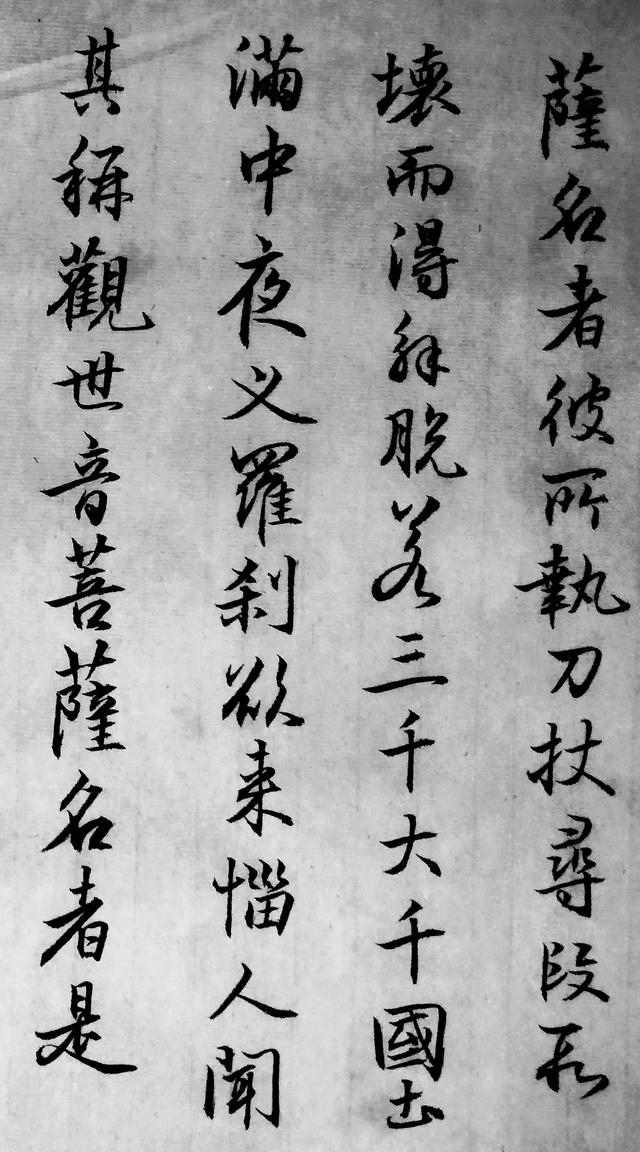 薩名者彼所執刀杖尋段段
壞而得解脫若三千大千國土
滿中夜叉羅刹欲来惱人聞
其稱觀世音菩薩名者是